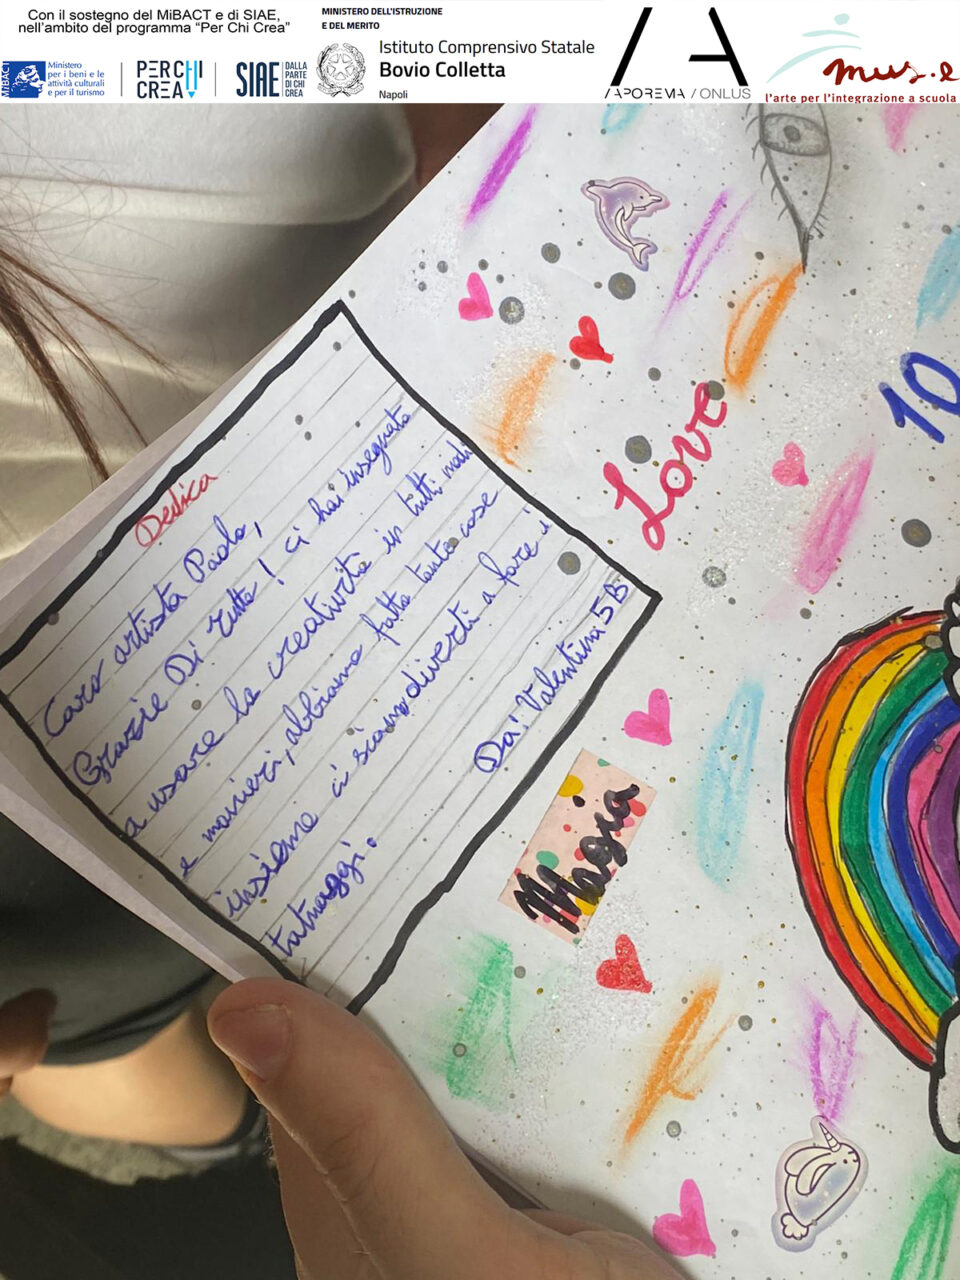 Con il sostegno del MiBACT e di SIAE,
nell'ambito del programma "Per Chi Crea"
MiBACT
Ministero
per i beni e le
attività culturali
e per il turismo
PER CHI
CREA
SIAE
DALLA
PARTE
DI CHI
CREA
MINISTERO DELL'ISTRUZIONE
E DEL MERITO
Istituto Comprensivo Statale
Bovio Colletta
Napoli
/APOREMA/ONLUS
mus.e
l'arte per l'integrazione a scuola
Dedica
Caro artista Paolo,
Grazie Di tutto! ci hai insegnato
a usare la creatività in tutti modi
e manieri, abbiamo fatto tante cose
insieme ci siamo divertiti a fare i
tatuaggi.
Da: Valentina 5B
Love
10